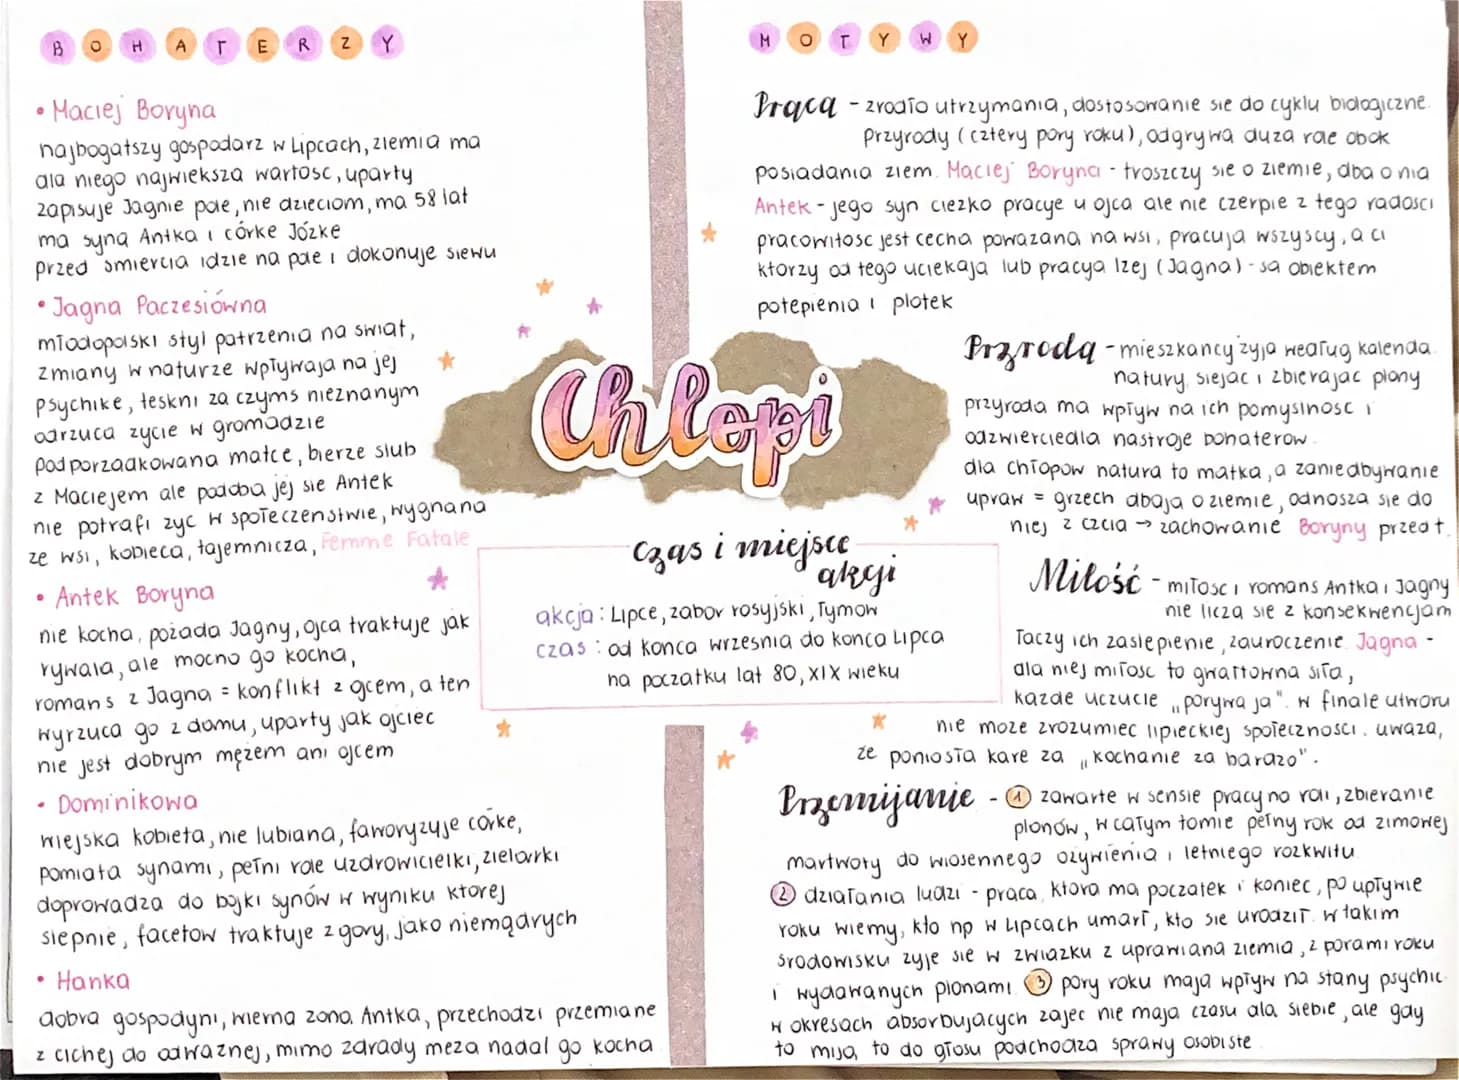 BOHATERZY
• Maciej Boryna
najbogatszy gospodarz w Lipcach, ziemia ma
dla niego największa wartosc, uparty
zapisuje Jagnie pole, nie dzieciom, ma 58 lat
ma syna Antka i córke Józke
przed smiercia idzie na pole i dokonuje siewu
• Jagna Paczesiówna
młodopolski styl patrzenia na swiat,
zmiany w naturze wpływaja na jej
psychike, teskni za czyms nieznanym
odrzuca zycie w gromadzie
podporzadkowana matce, bierze slub
z Maciejem ale podoba jej sie Antek
nie potrafi zyc w społeczenstwie, wygnana
ze wsi, kobieca, tajemnicza, Femme Fatale
• Antek Boryna
nie kocha, pożada Jagny, ojca traktuje jak
rywala, ale mocno go kocha,
romans z Jagna = konflikt z ojcem, a ten
wyrzuca go z domu, uparty jak ojciec
nie jest dobrym mężem ani ojcem
• Dominikowa
wiejska kobieta, nie lubiana, faworyzuje córke,
pomiata synami, pełni role uzdrowicielki, zielarki
doprowadza do bojki synów w wyniku ktorej
slepnie, facetow traktuje z gory, jako niemądrych
• Hanka
dobra gospodyni, wierna zona Antka, przechodzi przemiane
z cichej do odwaznej, mimo zdrady meza nadal go kocha
Chłopi
czas i miejsce
akcji
akcja: Lipce, zabor rosyjski, Tymow
czas: od konca wrzesnia do konca Lipca
na poczatku lat 80, XIX wieku
MOTYWY
Praca - zrodło utrzymania, dostosowanie sie do cyklu biologiczne
przyrody (cztery pory roku), odgrywa duza role obok
posiadania ziem. Maciej Boryna - troszczy sie o ziemie, dba o nia
Antek - jego syn ciezko pracuje u ojca ale nie czerpie z tego radosci
pracowitosc jest cecha powazana na wsi, pracuja wszyscy, a ci
ktorzy od tego uciekaja lub pracuja lzej (Jagna) - sa obiektem
potepienia i plotek
Przyroda - mieszkancy żyja według kalenda
natury siejac i zbierajac plony
przyroda ma wpływ na ich pomyslnosc i
odzwierciedla nastroje bohaterow
dla chłopow natura to matka, a zaniedbywanie
upraw = grzech dbaja o ziemie, odnosza sie do
niej z czcia → zachowanie Boryny przed t.
Miłość - miłosc i romans Antka i Jagny
nie licza sie z konsekwencjam
łaczy ich zaslepienie, zauroczenie Jagna -
dla niej miłosc to gwałtowna siła,
kazde uczucie „porywa ja". w finale utworu
nie moze zrozumiec lipieckiej społecznosci. uwaza,
że poniosła kare za „kochanie za bardzo".
Przemijanie - 1 zawarte w sensie pracy na roli, zbieranie
plonów, w całym tomie pełny rok od zimowej
martwoty do wiosennego ozywienia i letniego rozkwitu
2 działania ludzi - praca, ktora ma poczatek i koniec, po upływie
roku wiemy, kto np w Lipcach umarł, kto sie urodził. w takim
srodowisku zyje sie w zwiazku z uprawiana ziemia, z porami roku
i wydawanych plonami. 3 pory roku maja wpływ na stany psychic
w okresach absorbujacych zajec nie maja czasu dla siebie, ale gdy
to mija, to do głosu podchodza sprawy osobiste